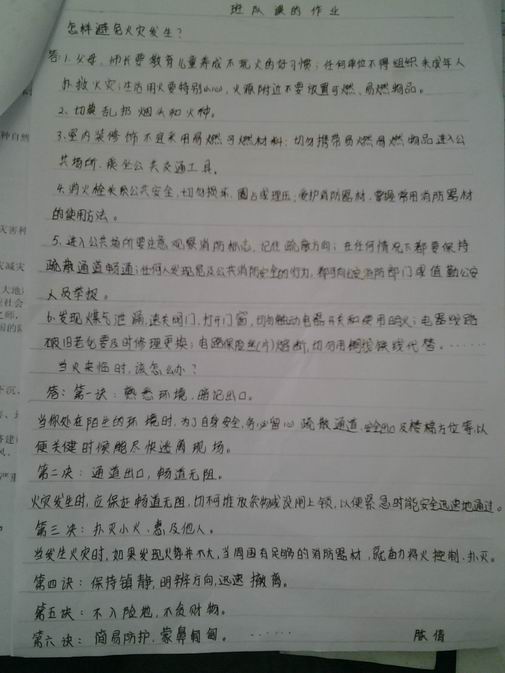 班队课的作业
怎样避免火灾发生?
答:1.父母、师长要教育儿童养成不玩火的好习惯;任何单位不得组织未成年人
扑救火灾;生活用火要特别小心,火源附近不要放置可燃、易燃物品。
2、切莫乱扔烟头和火种。
3.室内装修饰不宜采用易燃可燃材料;切勿携带易燃易燃物品进入公
共场所、乘坐公共交通工具。
4.消火栓关系公共安全,切勿损坏、圈占或埋压;爱护消防器材,掌握常用消防器材
的使用方法。
5.进入公共场所要注意观察消防标志,记住疏散方向;在任何情况下都要保持
疏散通道畅通;任何人发现危及公共消防安全的行为,都可向公安消防部门或值勤公安
人员举报。
6.发现煤气泄漏,速关阀门,打开门窗,切勿触动电器开关和使用明火;电器线路
破旧老化要及时修理更换;电路保险丝(片)熔断,切勿用铜铁线代替。……
当火来临时,该怎么办?
答:第一诀:熟悉环境,暗记出口。
当你处在陌生的环境时,为了自身安全,务必留心疏散通道、安全出口及楼梯方位等,以
便关键时候能尽快逃离现场。
第二诀:通道出口,畅通无阻。
火灾发生时,应保证畅通无阻,切不可堆放杂物或设闸上锁,以便紧急时能安全迅速地通过。
第三诀:扑灭小火,惠及他人。
当发生火灾时,如果发现火势并不大,当周围有足够的消防器材,就奋力将火控制、扑灭。
第四诀:保持镇静,明辨方向,迅速撤离。
第五诀:不入险地,不贪财物。
第六诀:简易防护,蒙鼻匍匐。……